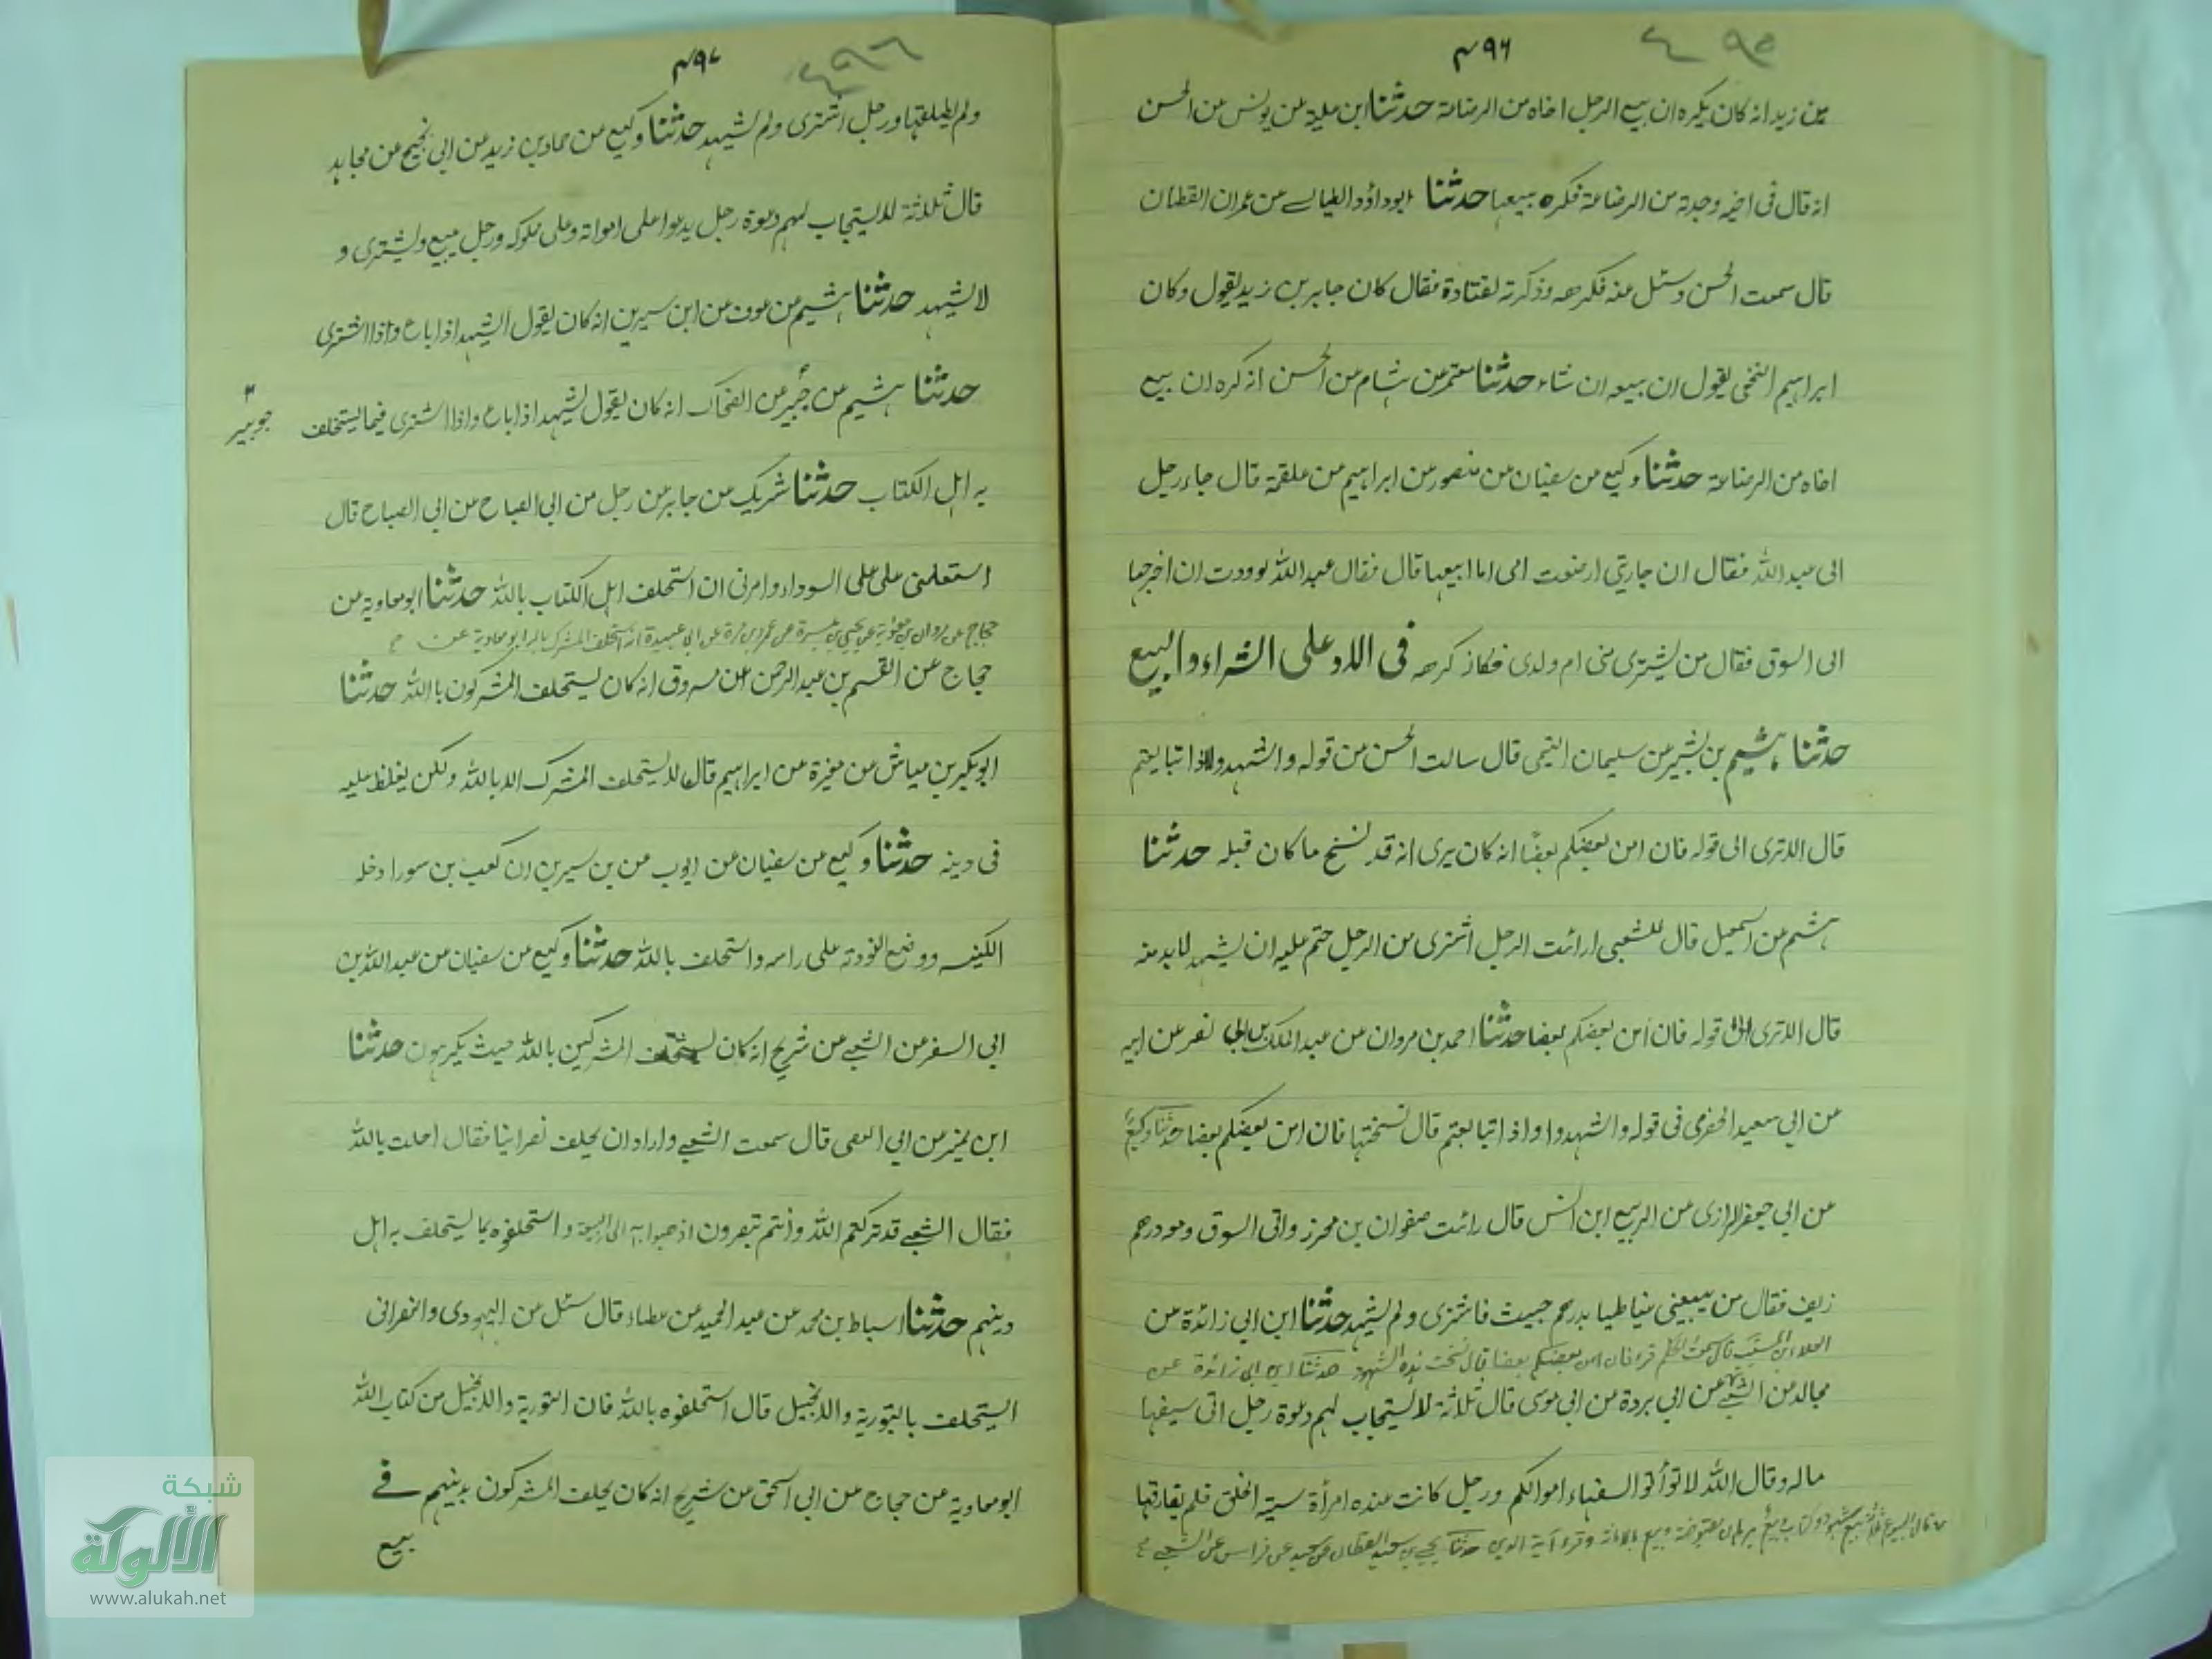 ٤٩٥
٤٩٦
بن زيد انه كان يكره ان يبيع الرجل اخاه من الرضاعة حدثنا ابن علية عن يونس عن الحسن
انه قال فى اخيه وجدته من الرضاعة فكره بيعها حدثنا ابو داؤد الطيالسے عن عمران القطان
قال سمعت الحسن وسئل عنه فكرهه وذكرته لقتادة فقال كان جابر بن زيد يقول وكان
ابراهيم النخعى يقول ان يبيعه ان شاء حدثنا معتمر عن هشام عن الحسن انه كره ان يبيع
اخاه من الرضاعة حدثنا وكيع عن سفيان عن منصور عن ابراهيم عن علقمة قال جاء رجل
الى عبد الله فقال ان جاريتي ارضعت ابنى اما ابيعها قال فقال عبد الله لوددت ان اخرجها
الى السوق فقال من يشترى منى ام ولدى فكانه كرهه فى الاشهاد على الشراء والبيع
حدثنا هشيم بن بشير عن سليمان التيمى قال سالت الحسن عن قوله واشهدوا اذا تبايعتم
قال الا ترى الى قوله فان امن بعضكم بعضا انه كان يرى انه قد نسخ ما كان قبله حدثنا
هشيم عن اسمعيل قال للشعبى ارائت الرجل اشترى من الرجل حتم عليه ان يشهد لا بد منه
قال الا ترى الى قوله فان أمن بعضكم بعضا حدثنا احمد بن مروان عن عبد الملك بن ابى نضر عن ابيه
عن ابي سعيد الخدرى فى قوله واشهدوا اذا تبايعتم قال نسختها فان امن بعضكم بعضا حدثنا وكيع
عن ابي جعفر الرازى عن الربيع ابن انس قال رائت صفوان بن محرز واتى السوق ومعه درهم
زيف فقال من يبيعنى عنبا طيبا بدرهم خبيث فاشترى ولم يشهد حدثنا ابن ابى زائدة عن
العلاء بن المسيب قال سمعت الحكم قرء فان امن بعضكم بعضا قال نسخت هذه الشهود حدثنا ابن ابى زائدة عن
مجالد عن الشعبي عن ابي بردة عن ابى موسى قال ثلاثة لا يستجاب لهم دعوة رجل اتى سفيها
ماله وقال الله لا تؤتوا السفهاء اموالكم ورجل كانت عنده امرأة سيئة الخلق فلم يفارقها
قال البيوع ثلاثة بيع بشهود وكتاب وبيع برهان مقبوضة وبيع بالامانة وقرء آية الدين حدثنا يحيى بن سعيد القطان عن سعيد عن فراس عن الشعبے
٤٩٦
٤٩٧
ولم يطلقها ورجل اشترى ولم يشهد حدثنا وكيع عن حماد بن زيد عن ابى نجيح عن مجاهد
قال ثلاثة لا يستجاب لهم دعوة رجل يدعوا على امراته وعلى مملوكه ورجل يبيع ويشترى و
لا يشهد حدثنا هشيم عن عوف عن ابن سيرين انه كان يقول اشهد اذا باع واذا اشترى
حدثنا هشيم عن جبير عن الضحاك انه كان يقول يشهد اذا باع واذا اشترى فيما يستحلف
جويبير
به اهل الكتاب حدثنا شريك عن جابر عن رجل من ابى الصباح عن ابى الصباح قال
استعملنى على على السواد وامرنى ان استحلف اهل الكتاب بالله حدثنا ابو معاوية عن
حجاج عن مروان بن معاوية عن يحيى بن ميسرة عن عمرو بن مرة عن ابى عبيدة انه استحلف المشرك بالله ابو معاوية عن
حجاج عن القسم بن عبد الرحمن عن مسروق انه كان يستحلف المشركون بالله حدثنا
ابو بكير بن عياش عن مغيرة عن ابراهيم قال لا يستحلف المشرك الا بالله ولكن يغلظ عليه
فى دينه حدثنا وكيع عن سفيان عن ايوب عن بن سيرين ان كعب بن سورا دخله
الكنيسه ووضع التوراته على راسه واستحلف بالله حدثنا وكيع عن سفيان عن عبد الله بن
ابى السفر عن الشعبے عن شريح انه كان يستحلف المشركين بالله حيث يكرهون حدثنا
ابن نمير عن ابي الغصن قال سمعت الشعبے واراد ان يحلف نصرانيا فقال احلف بالله
فقال الشعبے قد تركتم الله وانتم تبصرون اذهبوا به الى البيعة واستحلفوه بما يستحلف به اهل
دينهم حدثنا اسباط بن محمد عن عبد الحميد عن عطاء قال سئل عن اليهودى والنصرانى
ايستحلف بالتورية والانجيل قال استحلفوه بالله فان التورية والانجيل من كتاب الله
ابو معاوية عن حجاج عن ابى اسحق عن شريح انه كان يحلف المشركون بدينهم فے
بيع
شبكة
الألوكة
www.alukah.net